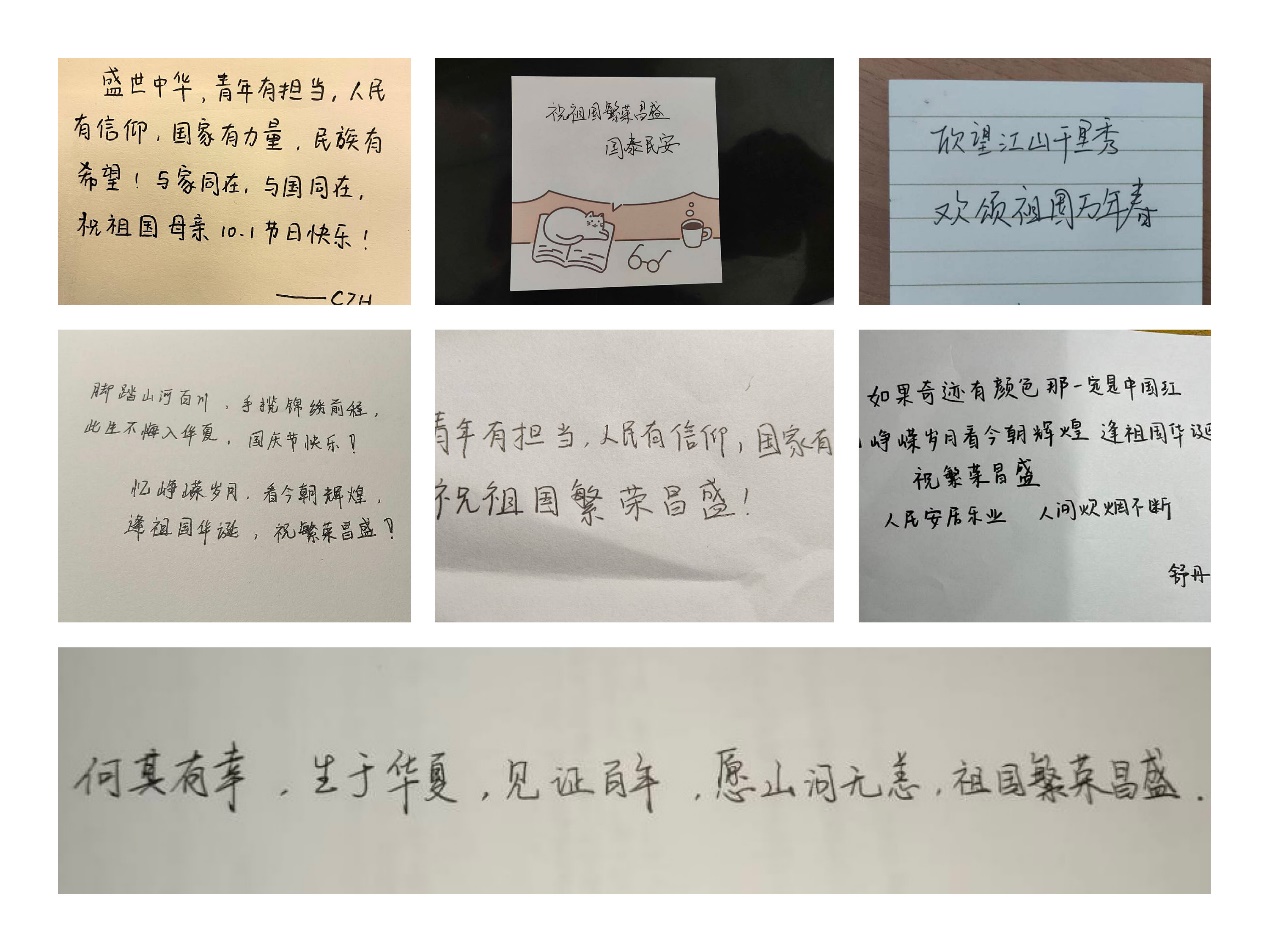 盛世中华,青年有担当,人民
有信仰,国家有力量,民族有
希望!与家同在,与国同在,
祝祖国母亲10.1节日快乐!
——CZH
祝祖国繁荣昌盛
国泰民安
欣望江山千里秀
欢颂祖国万年春
脚踏山河百川,手揽锦绣前程,
此生不悔入华夏,国庆节快乐!
忆峥嵘岁月,看今朝辉煌,
逢祖国华诞,祝繁荣昌盛!
青年有担当,人民有信仰,国家有
祝祖国繁荣昌盛!
如果奇迹有颜色 那一定是中国红
峥嵘岁月看今朝辉煌 逢祖国华诞
祝繁荣昌盛
人民安居乐业 人间炊烟不断
舒丹
何其有幸,生于华夏,见证百年,愿山河无恙,祖国繁荣昌盛.